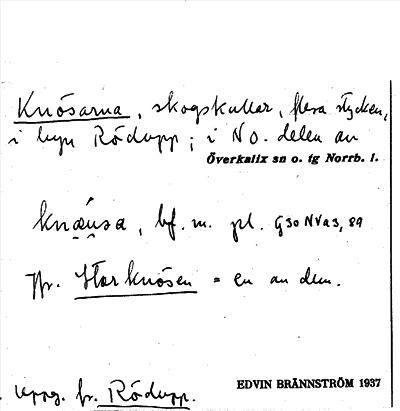 Knösarna, skogskullar, flera stycken,
i byn Rödupp; i NO. delen av
Överkalix sn o. tg Norrb. l.
knæusa, bf. m. pl. G30NVa3,89
Jfr. Storknösen = en av dem.
Uppg. fr. Rödupp.
EDVIN BRÄNNSTRÖM 1937